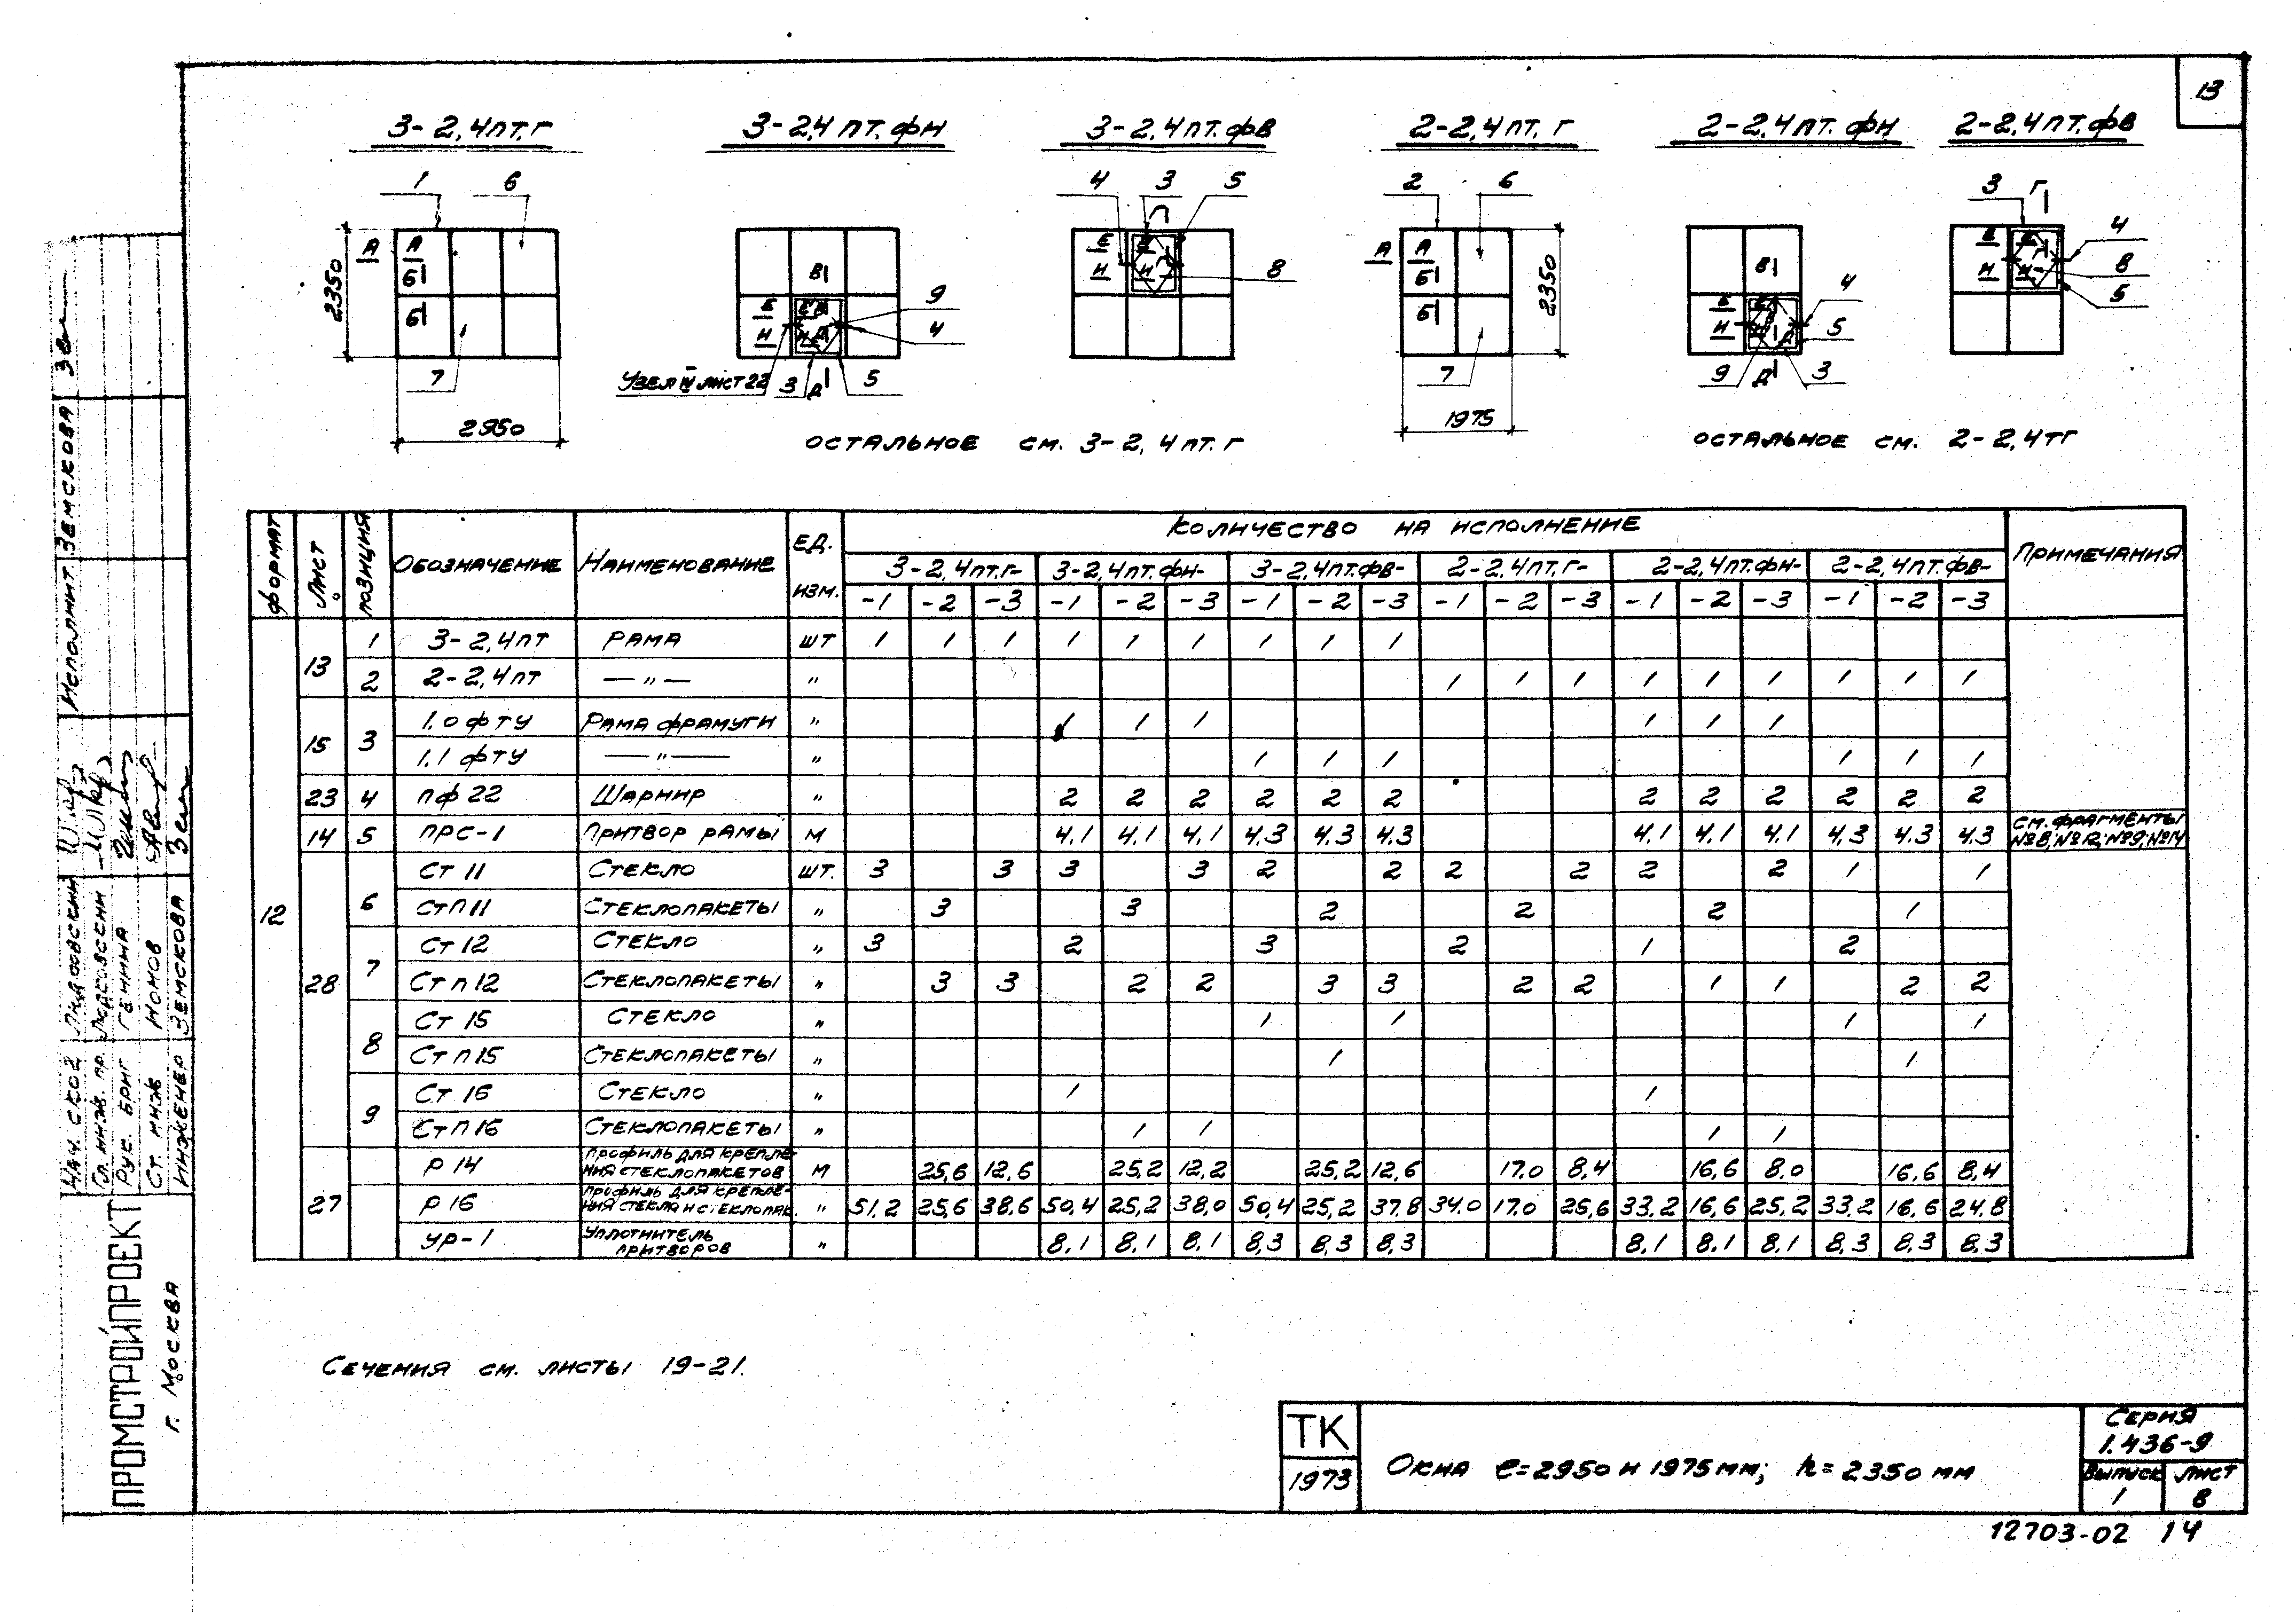 13
3-2,4пт.г
3-2,4 пт.фн
3-2,4пт.фв
2-2,4пт.г
2-2,4пт.фн
2-2,4пт.фв
1 6
4 3 5
2 6
3 Г
А А Б Б
2350
7
2950
В
Е Е В
Н Н Д
9
4
Узел IV лист 22 3 Д 5
Е Е Г
Н Н
8
А А Б Б
2350
7
1975
В
Е Е
Н
4
5
9 Д 3
Е Е Г
Н Н
4
8
5
Остальное см. 3-2,4пт.г
Остальное см. 2-2,4тг
Формат Лист Позиция Обозначение Наименование Ед. изм. Количество на исполнение Примечания
3-2,4пт.г- 3-2,4пт.фн- 3-2,4пт.фв- 2-2,4пт.г- 2-2,4пт.фн- 2-2,4пт.фв-
-1 -2 -3 -1 -2 -3 -1 -2 -3 -1 -2 -3 -1 -2 -3 -1 -2 -3
12
13 1 3-2,4пт Рама шт 1 1 1 1 1 1 1 1 1
2 2-2,4пт —"— " 1 1 1 1 1 1 1 1 1
15 3 1.0фту Рама фрамуги " 1 1 1 1 1 1
1.1фту —"— " 1 1 1 1 1 1
23 4 пф22 Шарнир " 2 2 2 2 2 2 2 2 2 2 2 2
14 5 прс-1 Притвор рамы м 4.1 4.1 4.1 4.3 4.3 4.3 4.1 4.1 4.1 4.3 4.3 4.3 См. фрагменты №8, №12, №9, №14
28 6 Ст 11 Стекло шт. 3 3 3 3 2 2 2 2 2 2 1 1
Стп11 Стеклопакеты " 3 3 2 2 2 1
7 Ст 12 Стекло " 3 2 3 2 1 2
Стп12 Стеклопакеты " 3 3 2 2 3 3 2 2 1 1 2 2
8 Ст 15 Стекло " 1 1 1 1
Стп15 Стеклопакеты " 1 1
9 Ст 16 Стекло " 1 1
Стп16 Стеклопакеты " 1 1 1 1
27 р 14 Профиль для крепления стеклопакетов м 25,6 12,6 25,2 12,2 25,2 12,6 17.0 8,4 16,6 8.0 16,6 8,4
р 16 Профиль для крепления стекла и стеклопак. " 51.2 25,6 38,6 50,4 25,2 38,0 50,4 25,2 37.8 34.0 17.0 25,6 33,2 16,6 25,2 33,2 16,6 24.8
ур-1 Уплотнитель притворов " 8,1 8,1 8,1 8,3 8,3 8,3 8,1 8,1 8,1 8,3 8,3 8,3
Сечения см. листы 19-21.
ТК
1973
Окна ℓ=2950 и 1975мм; h=2350мм
Серия
1.436-9
Выпуск
1
Лист
8
12703-02 14
Исполнит. Земскова
Нач. СКО2
Гл. инж. пр.
Рук. бриг Генина
Ст. инж
Инженер Земскова
ПРОМСТРОЙПРОЕКТ
г. Москва